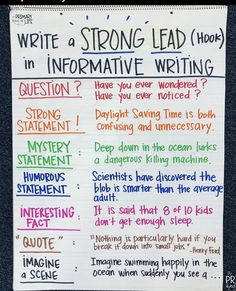 the PRIMARY LIFE
WRITE a STRONG LEAD (Hook)
in INFORMATIVE WRITING
QUESTION? Have you ever wondered?
Have you ever noticed?
STRONG STATEMENT! Daylight Saving Time is both
confusing and unnecessary.
MYSTERY STATEMENT: Deep down in the ocean lurks
a dangerous killing machine.
HUMOROUS STATEMENT: Scientists have discovered the
blob is smarter than the average
adult.
INTERESTING FACT It is said that 8 of 10 kids
don't get enough sleep.
"QUOTE" "Nothing is particularly hard if you
break it down into small jobs." -Henry Ford
IMAGINE a SCENE: Imagine swimming happily in the
ocean when suddenly you see a ...